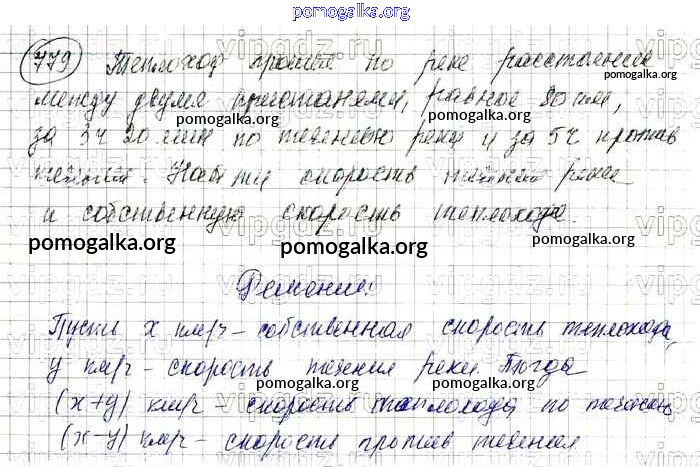 pomogalka.org
779 Теплоход прошёл по реке расстояние
pomogalka.org
между двумя пристанями, равное 80 км,
pomogalka.org pomogalka.org
за 3ч 20 мин по течению реки и за 5ч против
течения. Найти скорость течения реки
и собственную скорость теплохода.
pomogalka.org pomogalka.org pomogalka.org
Решение:
Пусть x км/ч - собственная скорость теплохода,
pomogalka.org pomogalka.org
y км/ч - скорость течения реки. Тогда
pomogalka.org pomogalka.org
(x+y) км/ч - скорость теплохода по течению
(x-y) км/ч - скорость против течения
pomogalka.org